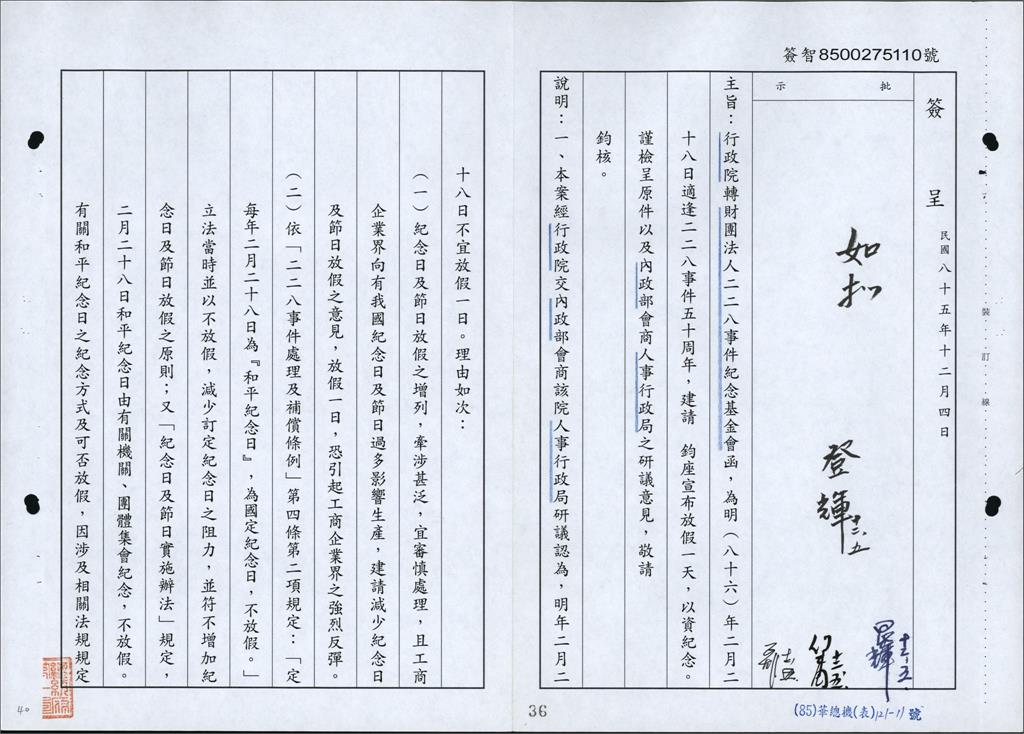 簽智8500275110號
簽 呈 民國八十五年十二月四日
批示
如擬
登輝 十二、五
主旨：行政院轉財團法人二二八事件紀念基金會函，為明（八十六）年二月二
十八日適逢二二八事件五十周年，建請 鈞座宣布放假一天，以資紀念。
謹檢呈原件以及內政部會商人事行政局之研議意見，敬請
鈞核。
說明：一、本案經行政院交內政部會商該院人事行政局研議認為，明年二月二
十八日不宜放假一日。理由如次：
（一）紀念日及節日放假之增列，牽涉甚泛，宜審慎處理，且工商
企業界向有我國紀念日及節日過多影響生產，建請減少紀念日
及節日放假之意見，放假一日，恐引起工商企業界之強烈反彈。
（二）依「二二八事件處理及補償條例」第四條第二項規定：「定
每年二月二十八日為『和平紀念日』，為國定紀念日，不放假。」
立法當時並以不放假，減少訂定紀念日之阻力，並符不增加紀
念日及節日放假之原則；又「紀念日及節日實施辦法」規定，
二月二十八日和平紀念日由有關機關、團體集會紀念，不放假。
有關和平紀念日之紀念方式及可否放假，因涉及相關法規規定
裝 訂 線
(85)華總機(表)121-11號
36
40